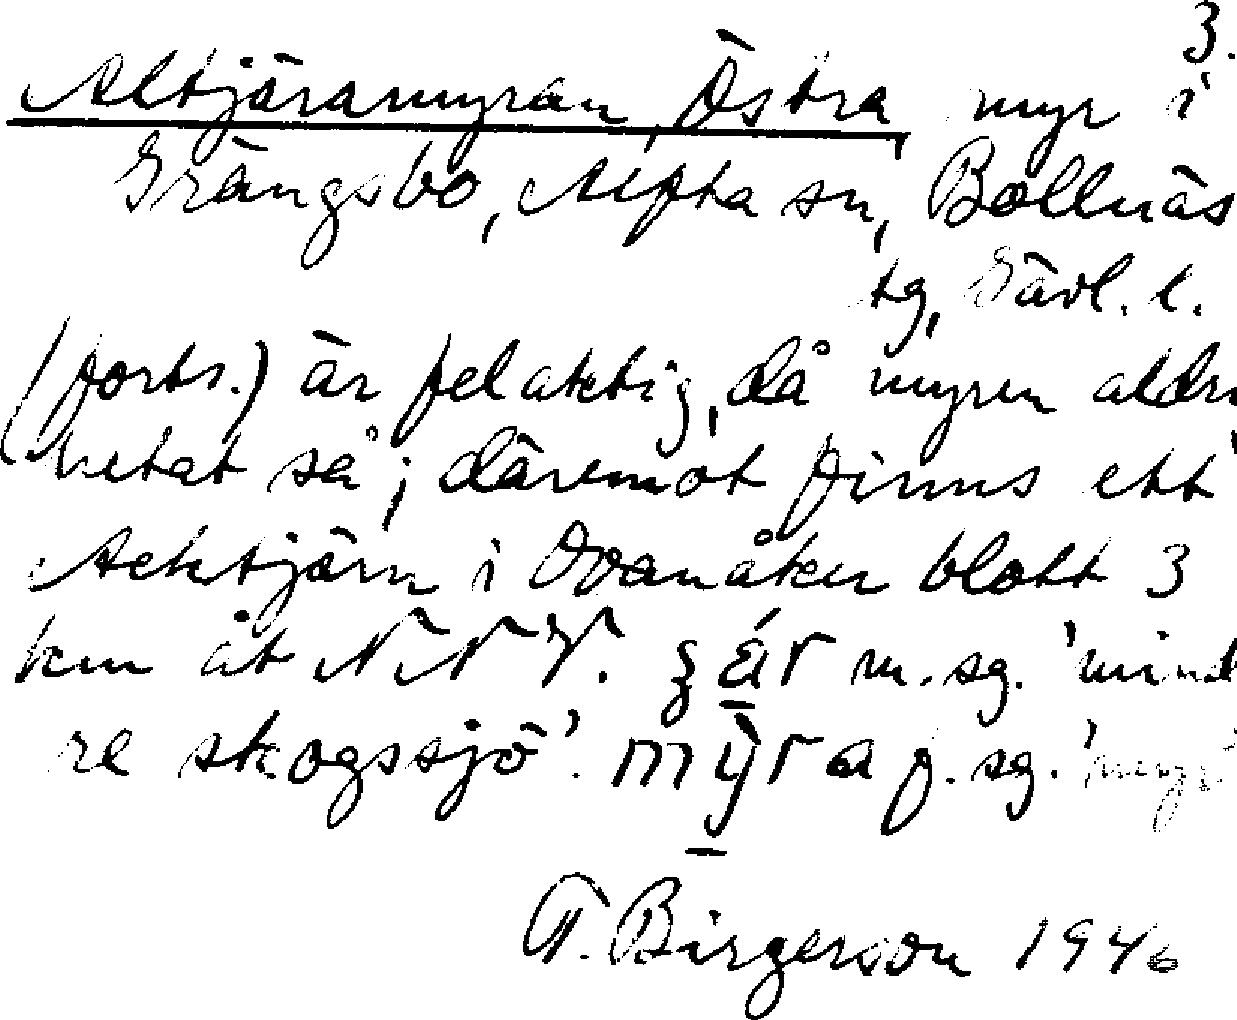 3.
Altjäramyran, Östra, myr i
Grängsbo, Alfta sn, Bollnäs
tg, Gävl. l.
(forts.) är felaktig, då myren aldri
hetat så; däremot finns ett
Acktjärn i Ovanåker blott 3
km åt NNV. m. sg. 'mind
re skogssjö'. mȳra f. sg. 'myr'
T. Birgerson 1946